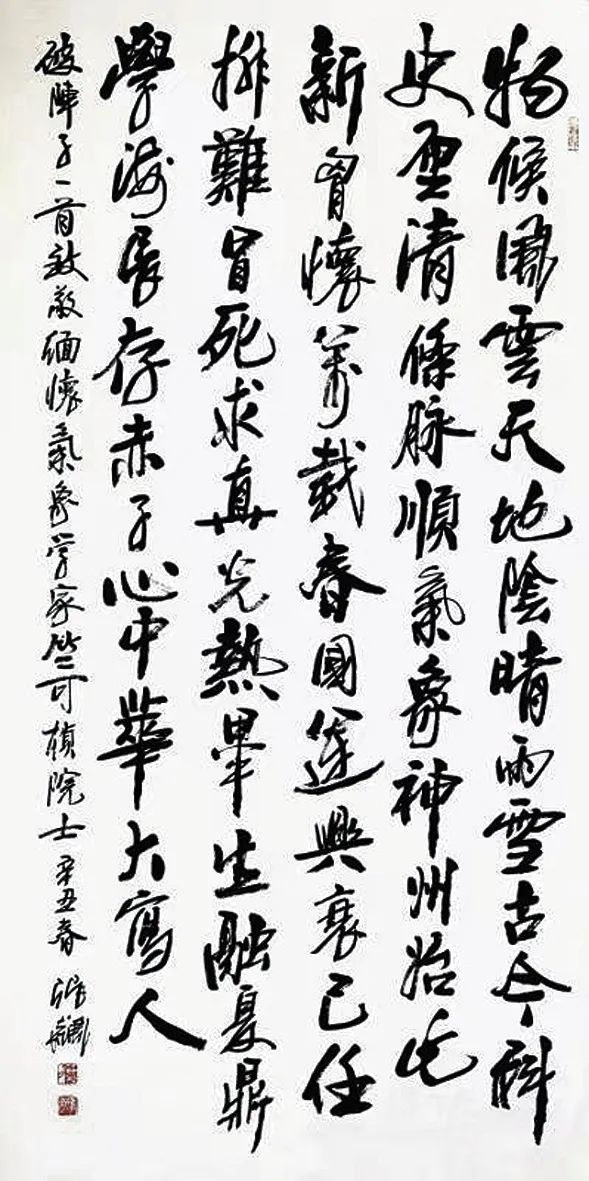 物候風雲天地陰晴雨雪古今科
史厘清條脉順氣象神州始
新胷懷萬載春國運興衰己任
排難冒死求真光熱畢生融夏鼎
學海長存赤子心中華大寫人
破陣子一首致敬緬懷氣象学家竺可楨院士 辛丑春 張